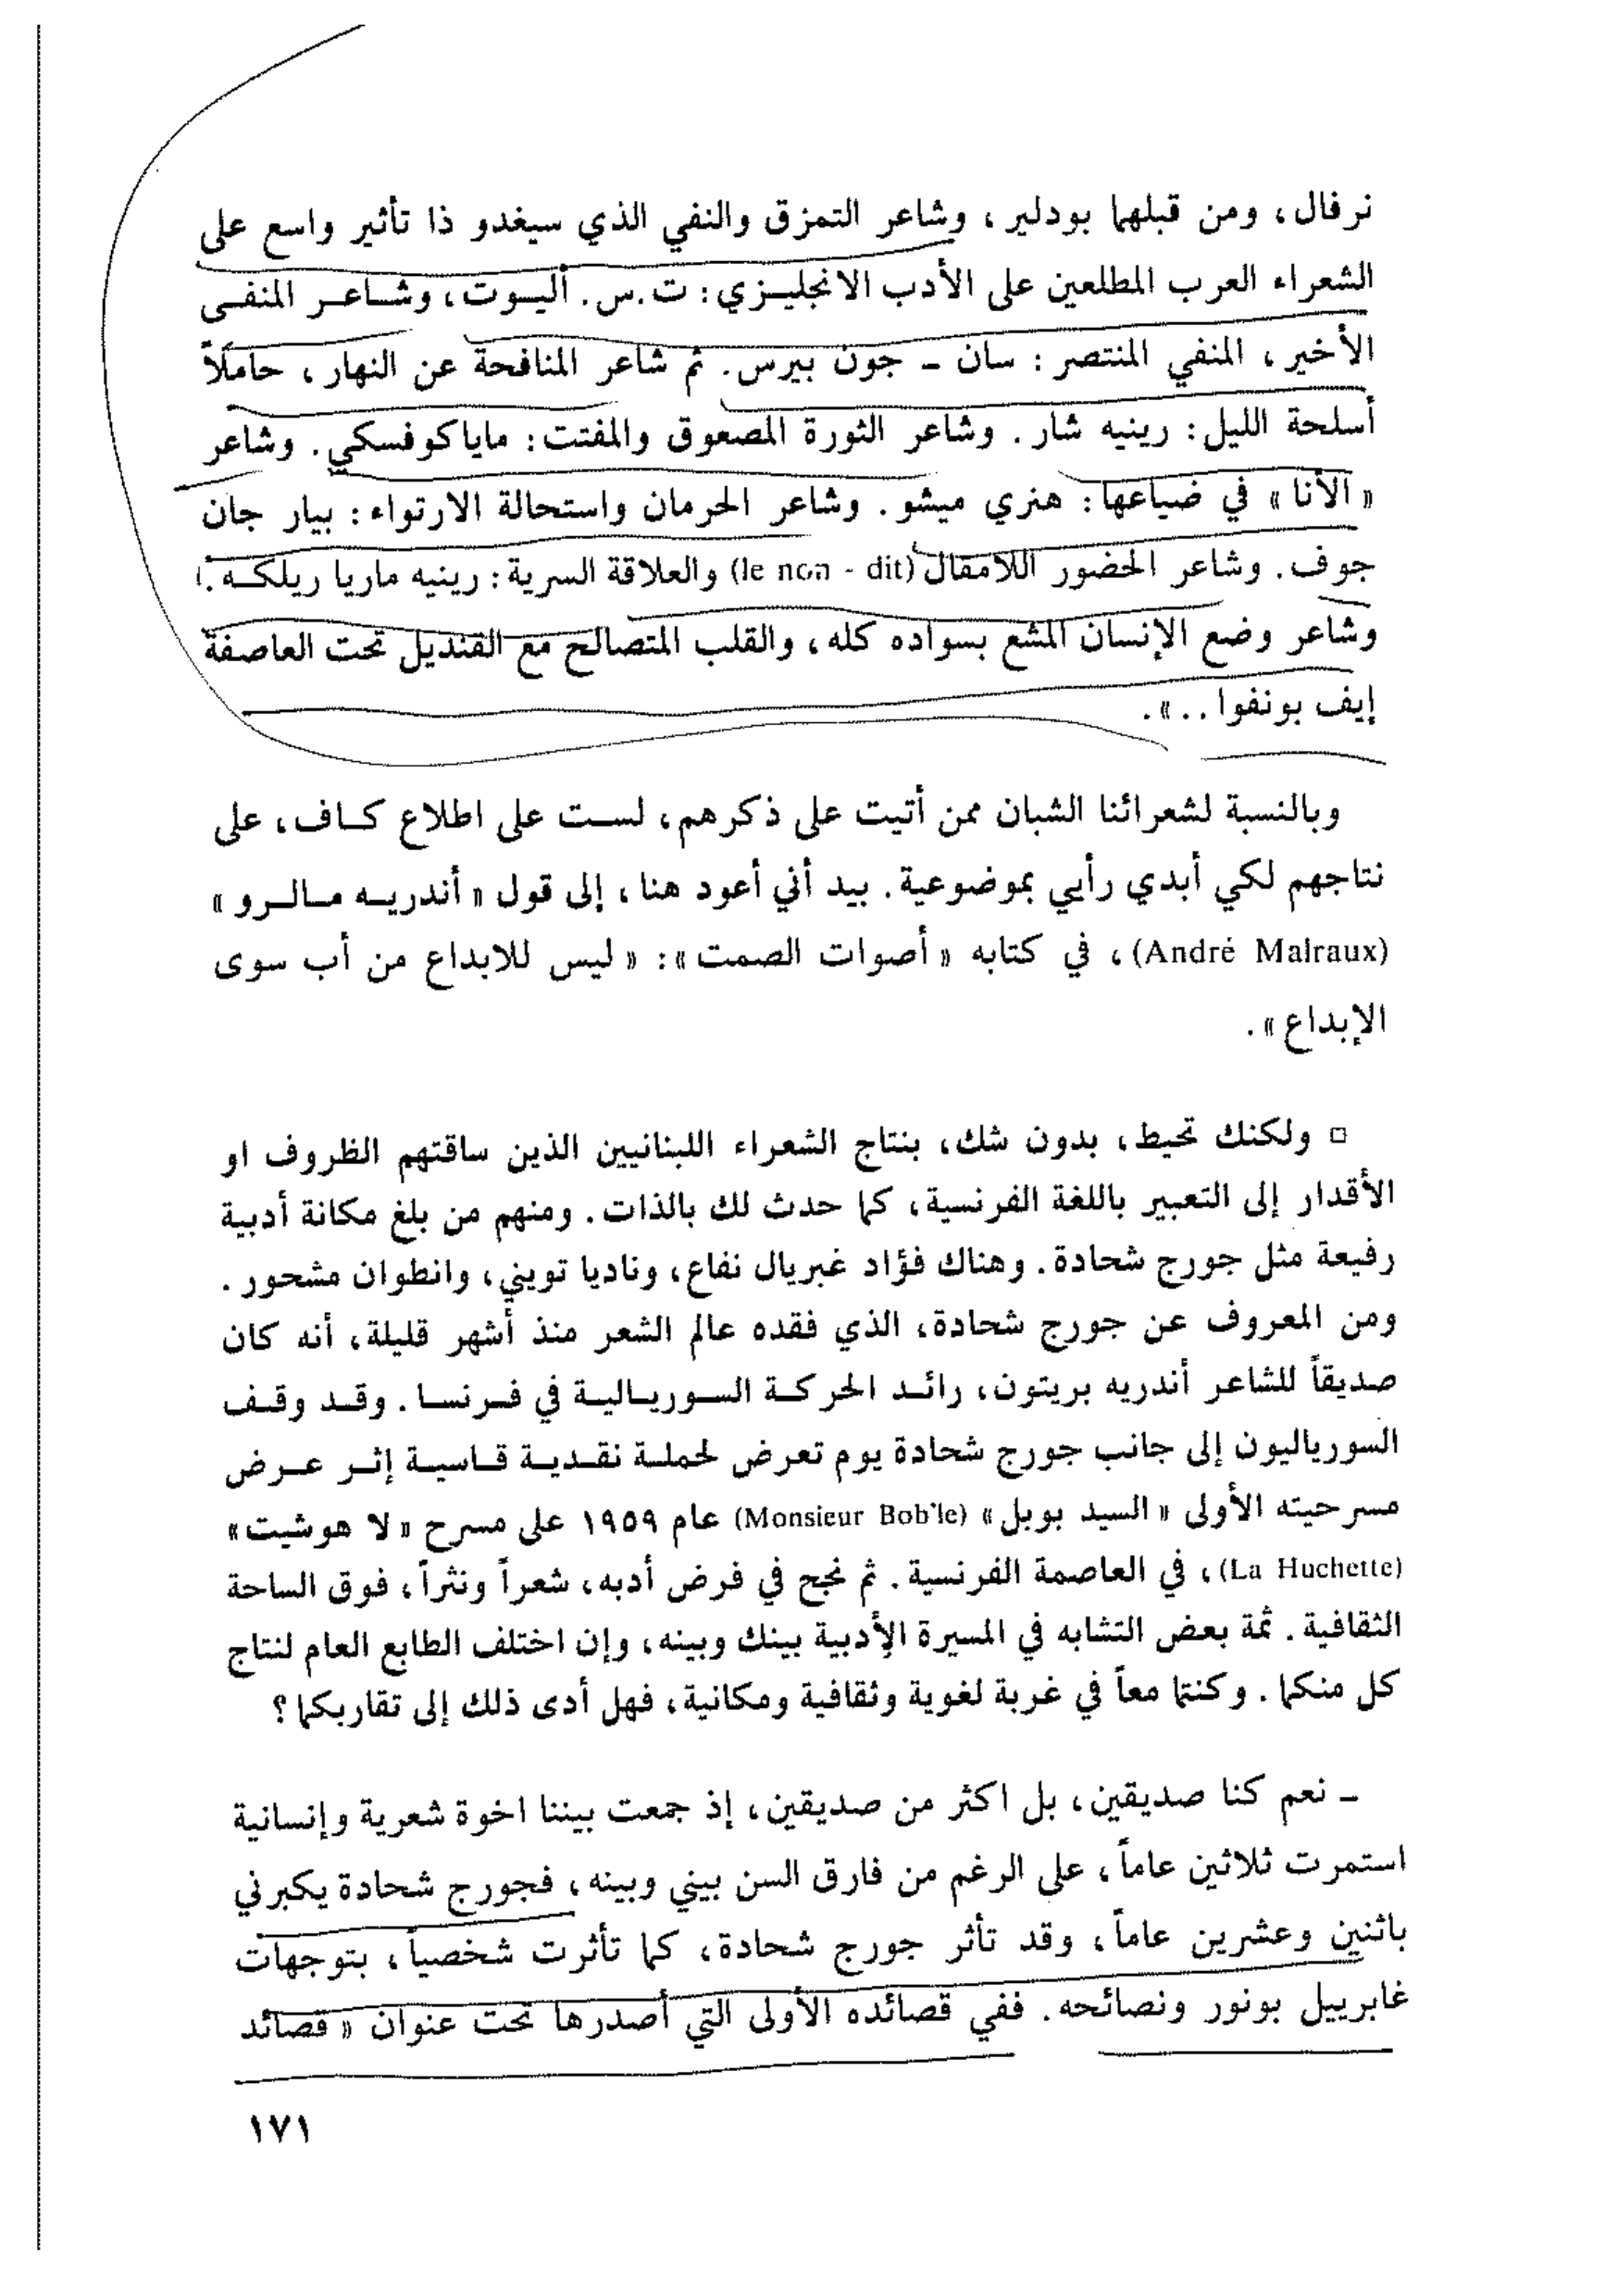 نرفال، ومن قبلهما بودلير، وشاعر التمزق والنفي الذي سيغدو ذا تأثير واسع على
الشعراء العرب المطلعين على الأدب الانجليزي: ت.س. أليوت، وشاعر المنفى
الأخير، المنفي المنتصر: سان ـ جون بيرس. ثم شاعر المنافحة عن النهار، حاملاً
أسلحة الليل: رينيه شار. وشاعر الثورة المصعوق والمفتت: ماياكوفسكي. وشاعر
«الأنا» في ضياعها: هنري ميشو. وشاعر الحرمان واستحالة الارتواء: بيار جان
جوف. وشاعر الحضور اللامقال (le non - dit) والعلاقة السرية: رينيه ماريا ريلكه.
وشاعر وضع الإنسان المشع بسواده كله، والقلب المتصالح مع القنديل تحت العاصفة
إيف بونفوا..».
وبالنسبة لشعرائنا الشبان ممن أتيت على ذكرهم، لست على اطلاع كاف، على
نتاجهم لكي أبدي رأيي بموضوعية. بيد أني أعود هنا، إلى قول «أندريه مالرو»
(André Malraux)، في كتابه «أصوات الصمت»: «ليس للابداع من أب سوى
الإبداع».
□ ولكنك تحيط، بدون شك، بنتاج الشعراء اللبنانيين الذين ساقتهم الظروف او
الأقدار إلى التعبير باللغة الفرنسية، كما حدث لك بالذات. ومنهم من بلغ مكانة أدبية
رفيعة مثل جورج شحادة. وهناك فؤاد غبريال نفاع، وناديا تويني، وانطوان مشحور.
ومن المعروف عن جورج شحادة، الذي فقده عالم الشعر منذ أشهر قليلة، أنه كان
صديقاً للشاعر أندريه بريتون، رائد الحركة السوريالية في فرنسا. وقد وقف
السورياليون إلى جانب جورج شحادة يوم تعرض لحملة نقدية قاسية إثر عرض
مسرحيته الأولى «السيد بوبل» (Monsieur Bob'le) عام ١٩٥٩ على مسرح «لا هوشيت»
(La Huchette)، في العاصمة الفرنسية. ثم نجح في فرض أدبه، شعراً ونثراً، فوق الساحة
الثقافية. ثمة بعض التشابه في المسيرة الأدبية بينك وبينه، وإن اختلف الطابع العام لنتاج
كل منكما. وكنتما معاً في غربة لغوية وثقافية ومكانية، فهل أدى ذلك إلى تقاربكما؟
ـ نعم كنا صديقين، بل اكثر من صديقين، إذ جمعت بيننا اخوة شعرية وإنسانية
استمرت ثلاثين عاماً، على الرغم من فارق السن بيني وبينه، فجورج شحادة يكبرني
باثنين وعشرين عاماً، وقد تأثر جورج شحادة، كما تأثرت شخصياً، بتوجهات
غابرييل بونور ونصائحه. ففي قصائده الأولى التي أصدرها تحت عنوان «قصائد
١٧١